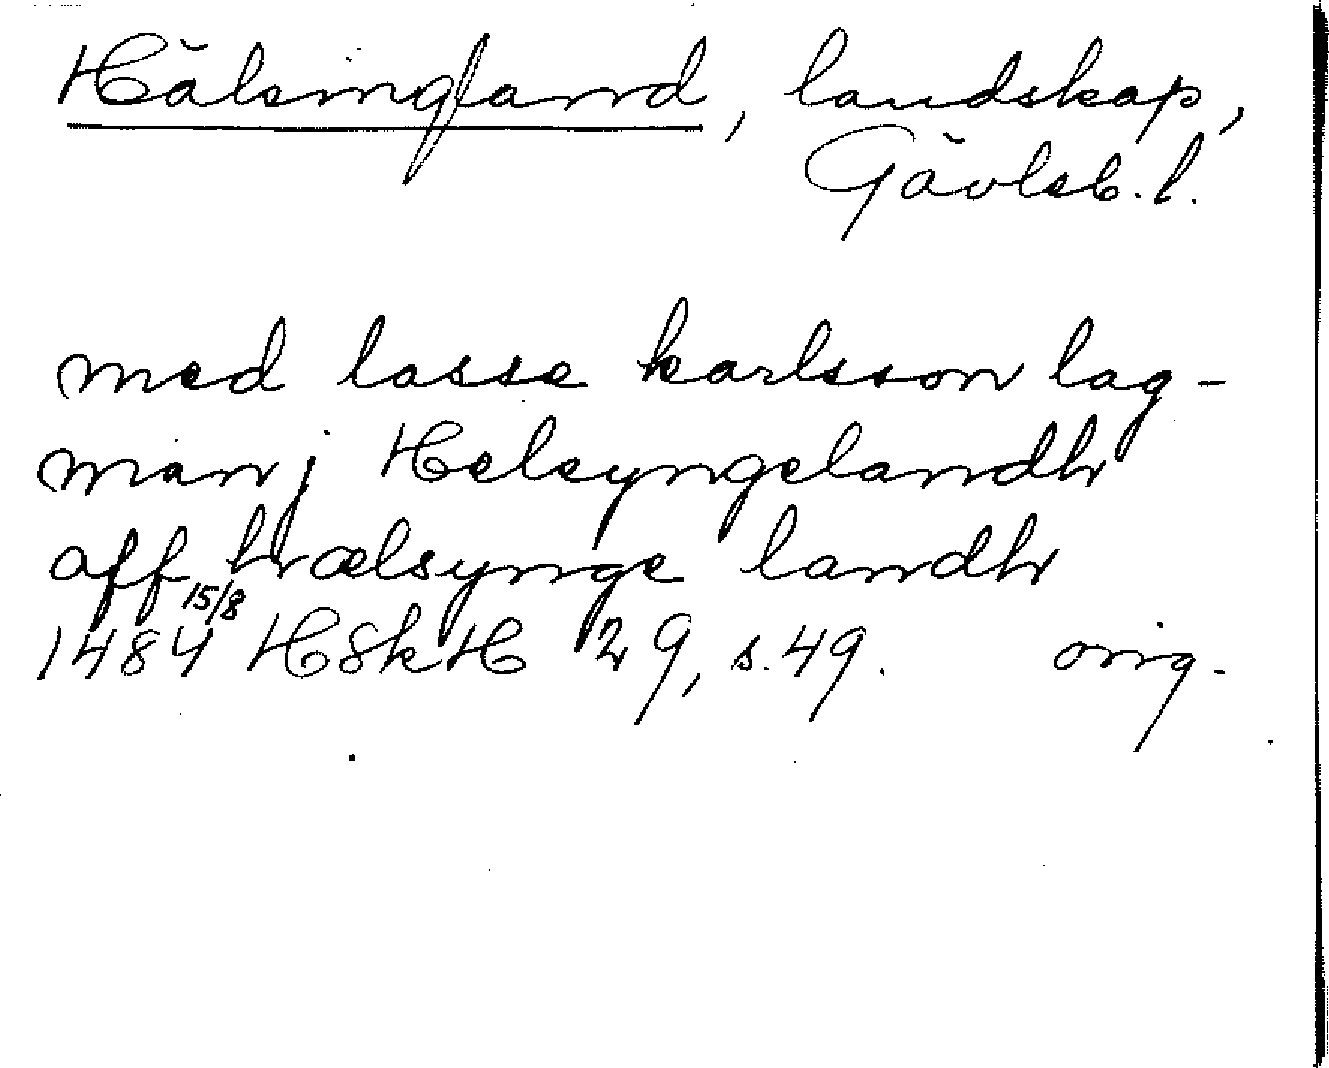 Hälsingland, landskap,
Gävleb. l.
med lasse karlsson lag-
man j Helsyngelandh
aff hælsynge landh
15/8
1484 HSkH 29, s. 49. orig.